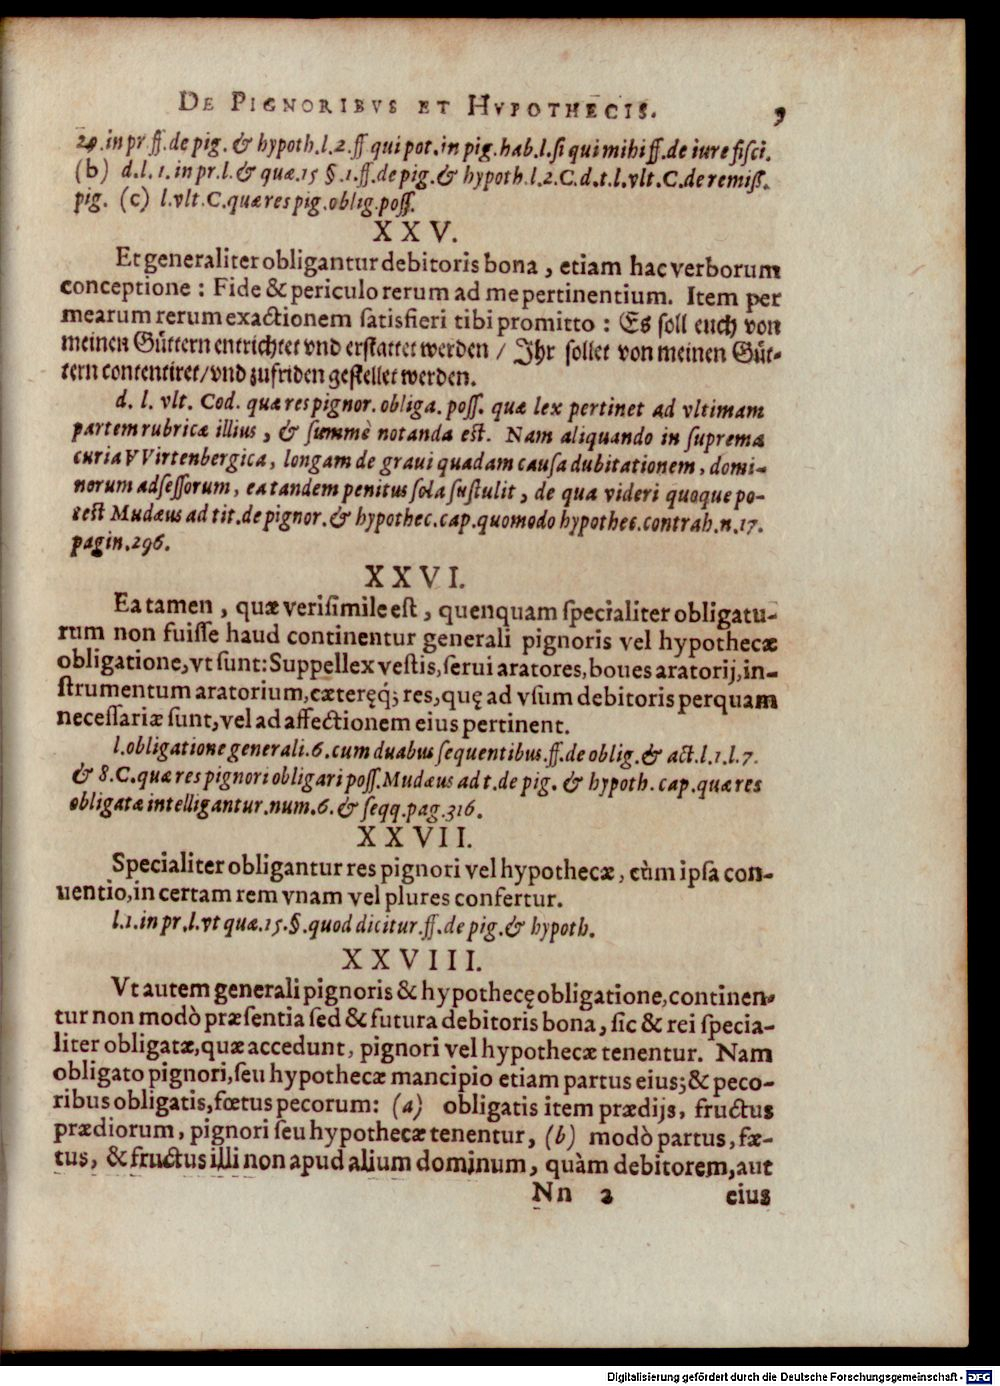 DE PIGNORIBVS ET HYPOTHECIS. 9
29.in pr ff.de pig. & hypoth.l.2.ff qui pot.in pig.hab.l.si qui mihi ff.de iure fisci.
(b) d.l.1.in pr.l.& quæ.15 §.1.ff.de pig.& hypoth.l.2.C.d.t.l.vlt.C.de remiss.
pig. (c) l.vlt.C.quæ res pig.oblig.poss.
XXV.
Et generaliter obligantur debitoris bona, etiam hac verborum
conceptione: Fide & periculo rerum ad me pertinentium. Item per
mearum rerum exactionem satisfieri tibi promitto: Es soll euch von
meinen Güttern entrichtet vnd erstattet werden / Ihr sollet von meinen Güt-
tern contentiret/vnd zufriden gestellet werden.
d. l. vlt. Cod. quæ res pignor. obliga. poss. quæ lex pertinet ad vltimam
partem rubricæ illius, & summè notanda est. Nam aliquando in suprema
curia VVirtenbergica, longam de graui quadam causa dubitationem, domi-
norum adsessorum, ea tandem penitus sola sustulit, de qua videri quoque po-
test Mudæus ad tit.de pignor.& hypothec.cap.quomodo hypothec.contrah.n.17.
pagin.296.
XXVI.
Ea tamen, quæ verisimile est, quenquam specialiter obligatu-
rum non fuisse haud continentur generali pignoris vel hypothecæ
obligatione, vt sunt: Suppellex vestis, serui aratores, boues aratorij, in-
strumentum aratorium, cæteręq́; res, quę ad vsum debitoris perquam
necessariæ sunt, vel ad affectionem eius pertinent.
l.obligatione generali.6.cum duabus sequentibus.ff.de oblig.& act.l.1.l.7.
& 8.C.quæ res pignori obligari poss.Mudæus ad t.de pig. & hypoth. cap.quæ res
obligatæ intelligantur.num.6.& seqq.pag.316.
XXVII.
Specialiter obligantur res pignori vel hypothecæ, cùm ipsa con-
uentio, in certam rem vnam vel plures confertur.
l.1.in pr.l.vt quæ.15.§.quod dicitur.ff.de pig.& hypoth.
XXVIII.
Vt autem generali pignoris & hypothecę obligatione, continen-
tur non modò præsentia sed & futura debitoris bona, sic & rei specia-
liter obligatæ, quæ accedunt, pignori vel hypothecæ tenentur. Nam
obligato pignori, seu hypothecæ mancipio etiam partus eius; & peco-
ribus obligatis, fœtus pecorum: (a) obligatis item prædijs, fructus
prædiorum, pignori seu hypothecæ tenentur, (b) modò partus, fœ-
tus, & fructus illi non apud alium dominum, quàm debitorem, aut
Nn 2 eius
Digitalisierung gefördert durch die Deutsche Forschungsgemeinschaft - DFG